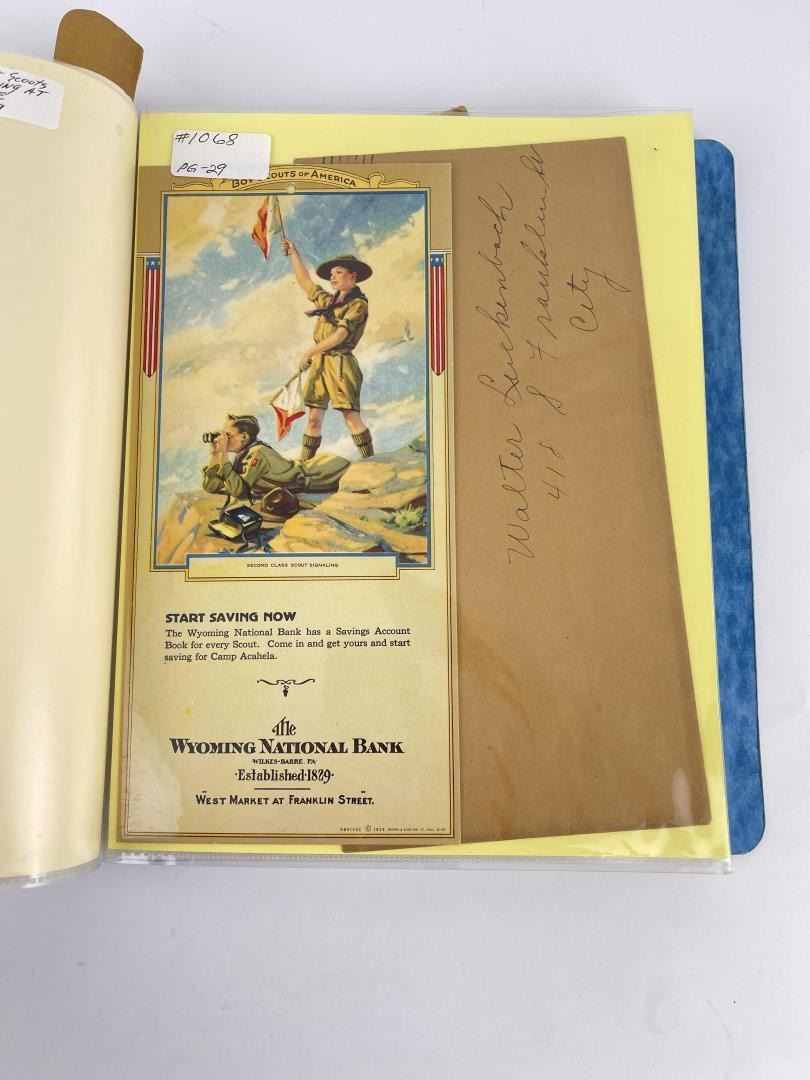 Scouts
ING AT
#1068
PG-29
BOY SCOUTS OF AMERICA
SECOND CLASS SCOUT SIGNALING
START SAVING NOW
The Wyoming National Bank has a Savings Account
Book for every Scout. Come in and get yours and start
saving for Camp Acahela.
The
WYOMING NATIONAL BANK
WILKES-BARRE, PA.
·Established·1829·
WEST MARKET AT FRANKLIN STREET.
© 1934 BROWN & BIGELOW, ST. PAUL, MINN.
Walter Luckenbach
418 S Franklin St
City